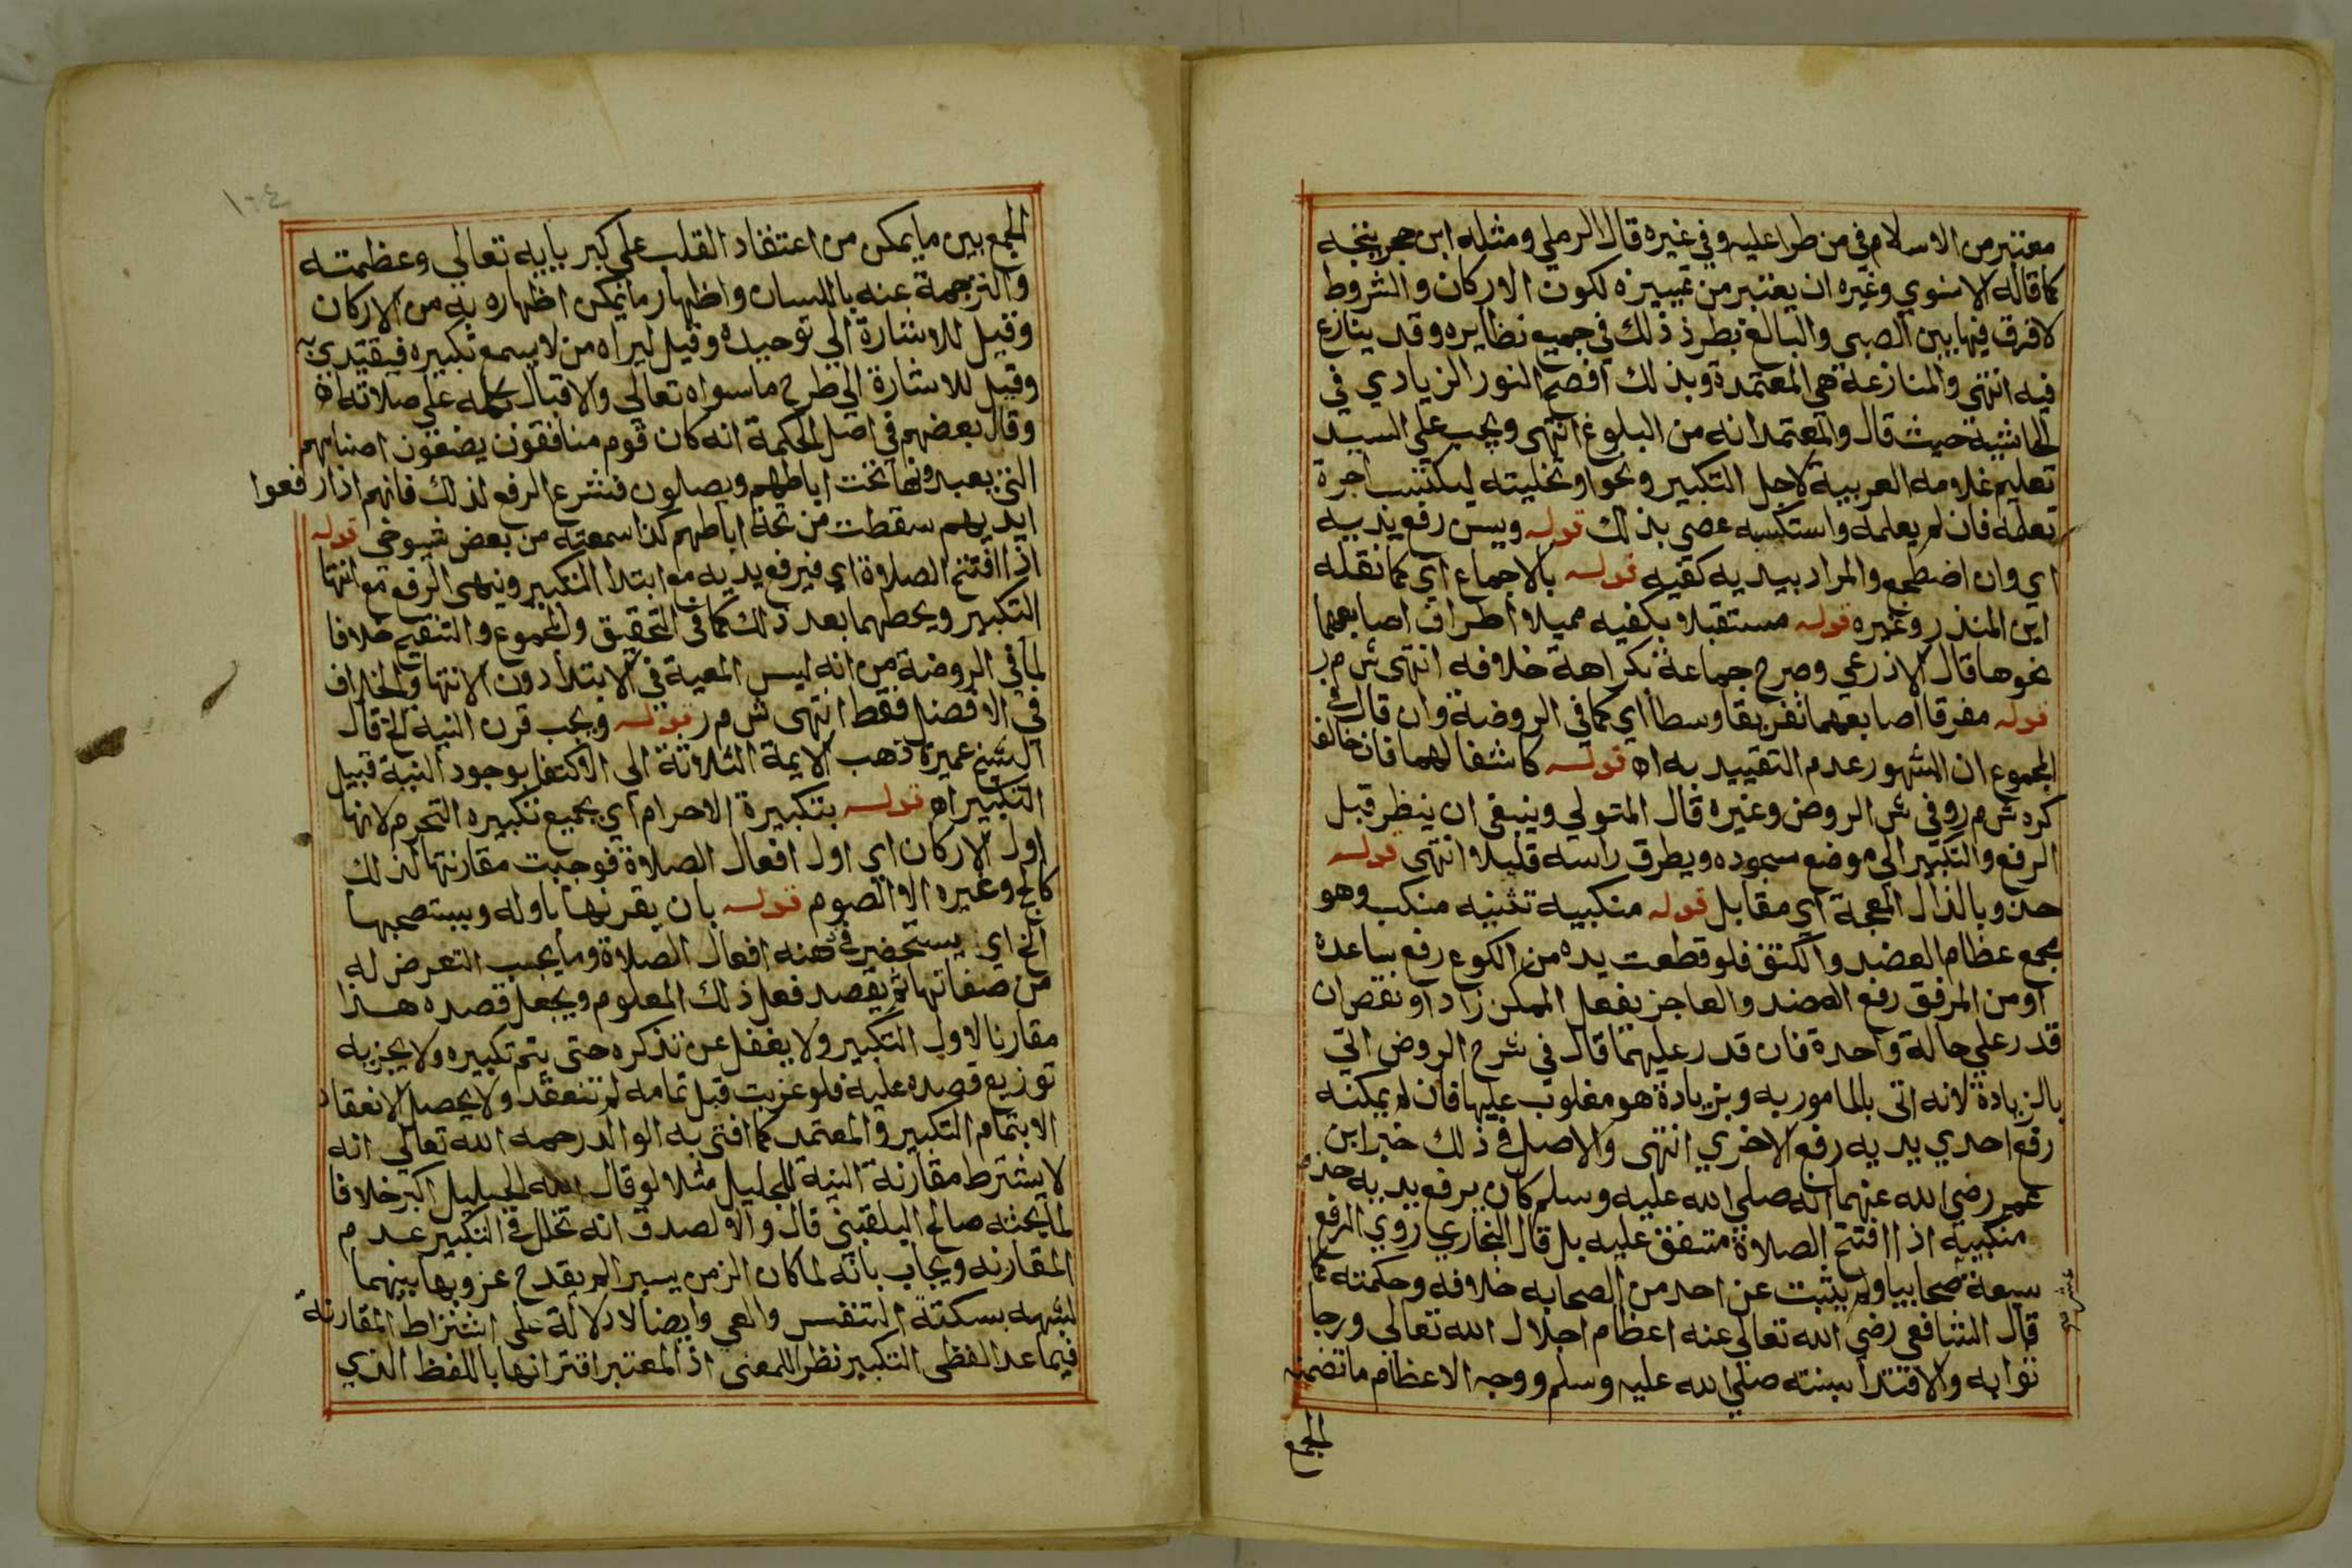 معتبر من الاسلام في من طرا عليه وفي غيره قال الرملي ومثله ابن حجر يتجه
كما قاله الاسنوي وغيره ان يعتبر من تمييزه لكون الاركان والشروط
لا فرق فيها بين الصبي والبالغ بطرد ذلك في جميع نظايره وقد ينازع
فيه انتهي والمنازعة هي المعتمدة وبذلك افصح النور الزيادي في
الحاشية حيث قال والمعتمد انه من البلوغ انتهى ويجب علي السيد
تعليم غلامه العربية لاجل التكبير ونحوا وتخليته ليكتسب اجرة
تعلمه فان لم يعلمه واستكسبه عصي بذلك قوله ويسن رفع يديه
اي وان اضطجع والمراد بيديه كفيه قوله بالاجماع اي كما نقله
ابن المنذر وغيره قوله مستقبلا بكفيه مميلا اطراف اصابعهما
نحوها قال الاذرعي وصرح جماعة بكراهة خلافه انتهى ش م ر
قوله مفرقا اصابعهما تفريقا وسطا اي كما في الروضة وان قال في
المجموع ان المشهور عدم التقييد به اه قوله كاشفا لهما فان خالف
كره ش م ر وفي ش الروض وغيره قال المتولي وينبغي ان ينظر قبل
الرفع والتكبير الي موضع سجوده ويطرق راسه قليلا انتهى قوله
حذو بالذال المعجمة اي مقابل قوله منكبيه تثنيه منكب وهو
مجمع عظام العضد والكتف فلو قطعت يده من الكوع رفع بساعده
او من المرفق رفع العضد والعاجز يفعل الممكن زاد او نقص ان
قدر علي حالة واحدة فان قدر عليهما قال في شرح الروض اتي
بالزيادة لانه اتى بالمامور به وبزيادة هو مغلوب عليها فان لم يمكنه
رفع احدي يديه رفع الاخري انتهى والاصل في ذلك خبر ابن
عمر رضي الله عنهما انه صلي الله عليه وسلم كان يرفع يديه حذو
منكبيه اذا افتتح الصلاة متفق عليه بل قال البخاري روي الرفع
سبعة عشر صحابيا ولم يثبت عن احد من الصحابه خلافه وحكمته كما
قال الشافعي رضي الله تعالي عنه اعظام اجلال الله تعالي ورجا
ثوابه والاقتدا بسنته صلي الله عليه وسلم ووجه الاعظام ما تضمنه
الجمع
١٠٤
الجمع بين ما يمكن من اعتقاد القلب علي كبريايه تعالي وعظمته
والترجمة عنه باللسان واظهار ما يمكن اظهاره به من الاركان
وقيل للاشارة الي توحيده وقيل ليراه من لا يسمع تكبيره فيقتدي به
وقيل للاشارة الي طرح ما سواه تعالي والاقبال بكله علي صلاته اه
وقال بعضهم في اصل الحكمة انه كان قوم منافقون يضعون اصنامهم
التي يعبدونها تحت اباطهم ويصلون فشرع الرفع لذلك فانهم اذا رفعوا
ايديهم سقطت من تحت اباطهم كذا سمعته من بعض شيوخي قوله
اذا افتتح الصلاة اي فيرفع يديه مع ابتدا التكبير وينهى الرفع مع انتها
التكبير ويحطهما بعد ذلك كما في التحقيق والمجموع والتنقيح خلافا
لما في الروضة من انه ليس المعية في الابتدا دون الانتها والخلاف
في الافضل فقط انتهى ش م ر قوله ويجب قرن النيه الخ قال
الشيخ عميرة ذهب الايمة الثلاثة الي الاكتفا بوجود النية قبيل
التكبير اه قوله بتكبيرة الاحرام اي بجميع تكبيره التحرم لانها
اول الاركان اي اول افعال الصلاة فوجبت مقارنتها لذلك
كالحج وغيره الا الصوم قوله بان يقرنها باوله ويستصحبها
الخ اي يستحضر في ذهنه افعال الصلاة وما يجب التعرض له
من صفاتها ثم يقصد فعل ذلك المعلوم ويجعل قصده هذا
مقارنا لاول التكبير ولا يغفل عن تذكره حتى يتم تكبيره ولا يجزيه
توزيع قصده عليه فلو عزبت قبل تمامه لم تنعقد ولا يحصل الانعقاد
الا بتمام التكبير والمعتمد كما افتى به الوالد رحمه الله تعالي انه
لا يشترط مقارنة النية للجليل مثلا لو قال الله الجليل اكبر خلافا
لما بحثه صالح البلقيني قال والا لصدق انه تخلل في التكبير عدم
المقارنه ويجاب بانه لما كان الزمن يسيرا لم يقدح عزوبها بينهما
لشبهه بسكتة التنفس والعي وايضا لا دلالة على اشتراط المقارنة
فيما عدا لفظى التكبير نظر اللمعنى اذ المعتبر اقترانها باللفظ الذي